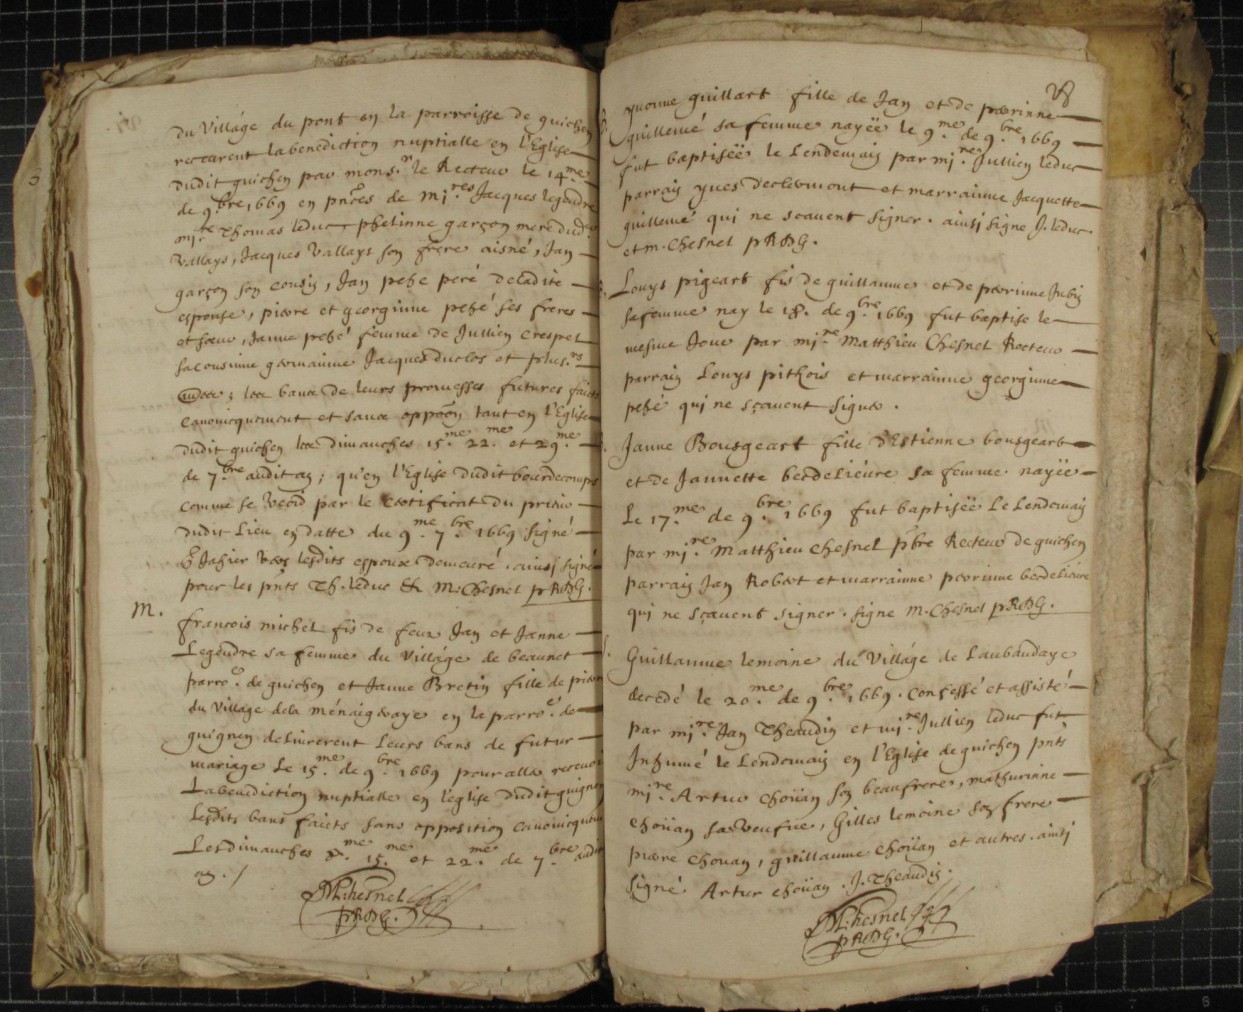 du Village du pont en la parroisse de guichen
receurent la benediction nuptialle en l'Eglise
dudit guichen par mons.r le Recteur le 14.me
de 9.bre 1669 en pnces de mi.res Jacques legendre
mi.re Thomas leduc phelinne garçon mere dud.
Vallays, Jacques Vallays son frere aisné, Jan
garçon son cousin, Jan pezé peré deladite
espouse, pierre et georginne pezé ses freres
et sœur, Janne pezé femme de Jullien Crespel
sa cousinne germainne Jacques duclos et plus.rs
autres; les bans de leurs promesses futures faicts
canonicquement et sans oppoon tant en l'Eglise
dudit guichen les dimanches 15.me 22.me et 29.me
de 7.bre audit an; qu'en l'Eglise dudit bourdecomps
comme se void par le Certificat du prieur
dudit Lieu en datte du 9.me 7.bre 1669 signé
Jahier lesdits espoux demeuré. ainsi signé
pour les pnts Th. leduc & M. Chesnel pRDG.
M.
françois michel fis de feux Jan et Janne
Legendre sa femme du Village de beaunet
parro. de guichen et Janne Bretin fille de pierre
du Village dela ménaigeraye en la parro. de
guignen deliurerent Leurs bans de futur
mariage le 15.me de 9.bre 1669 pour aller recevoir
La benediction nuptialle en l'eglise dudit guignen
Lesdits bans faicts sans opposition canonicquem
Les dimanches 8.me 15.me et 22.me de 7.bre audit
an. /
M. Chesnel
pRDG.
yvonne guillart fille de Jan et de perrinne
guillemé sa femme nayëe le 9.me de 9.bre 1669
fut baptisëe le Lendemain par mi.re Jullien leduc
parrain yves declermont et marrainne Jacquette
guillemé qui ne scavent signer. ainsi signe J. leduc
et M. Chesnel pRDG.
Louys pigeart fis de guillaume et de perrinne Jubin
sa femme nay le 18. de 9.bre 1669 fut baptise le
mesme Jour par mi.re Matthieu Chesnel Recteur
parrain Louys pithois et marrainne georginne
pezé qui ne sçavent signer.
Janne Bousgeart fille d'Estienne bousgeart
et de Jannette berdelieure sa femme nayëe
Le 17.me de 9.bre 1669 fut baptisëe Le Lendemain
par mi.re Matthieu Chesnel pbre Recteur de guichen
parrain Jan Robert et marrainne perrinne berdelieure
qui ne sçavent signer. signe M. Chesnel pRDG.
Guillaume lemoine du Village de Laubaudaye
decedé le 20.me de 9.bre 1669. Confessé et assisté
par mi.re Jan Theaudin et mi.re Jullien leduc fut
Inhumé le Lendemain en l'Eglise de guichen pnts
mi.re Artur choüan son beaufrere, mathurinne
choüan sa veufue, Gilles lemoine son frere
pierre Chouan, guillaume choüan et autres. ainsi
signé. Artur choüan. J. Theaudin.
M. Chesnel
pRDG.